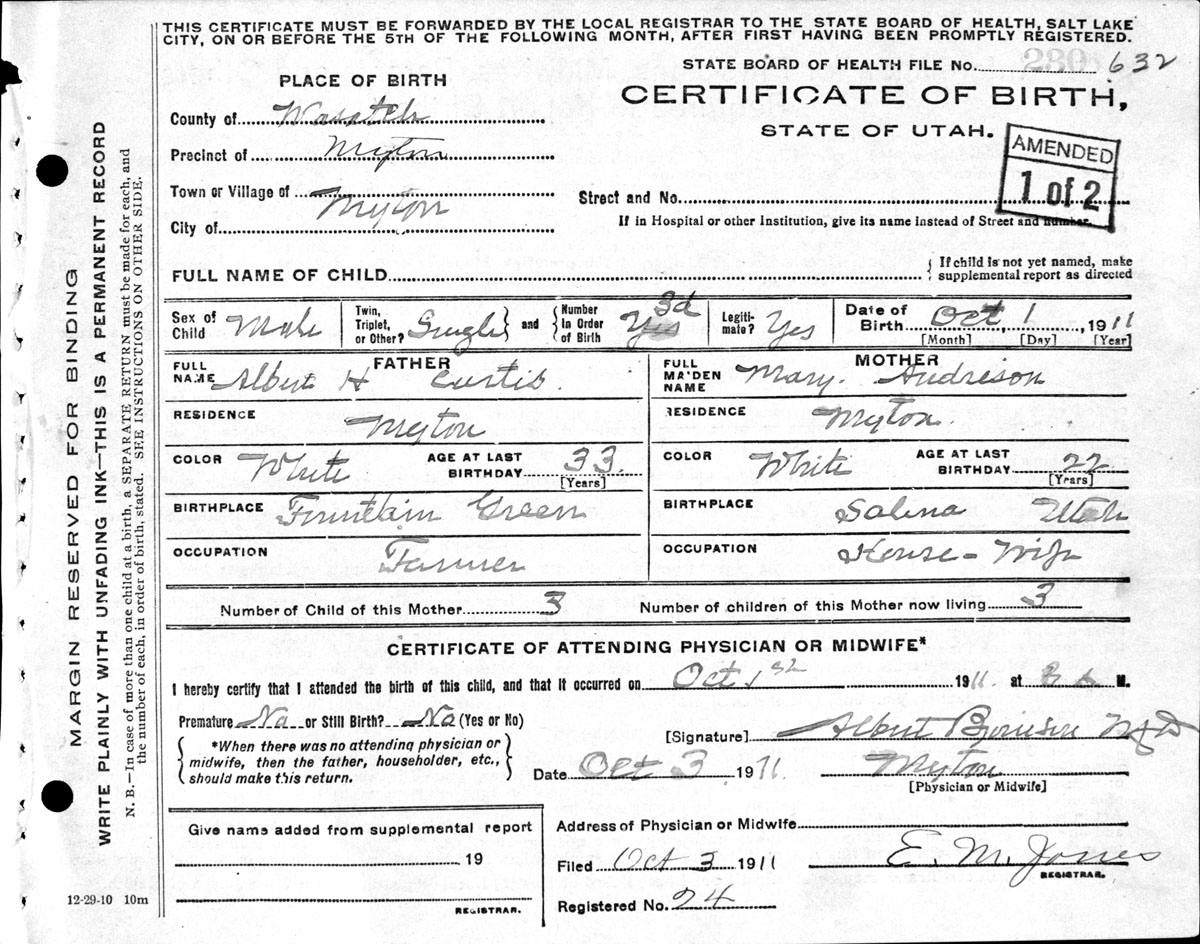 THIS CERTIFICATE MUST BE FORWARDED BY THE LOCAL REGISTRAR TO THE STATE BOARD OF HEALTH, SALT LAKE
CITY, ON OR BEFORE THE 5TH OF THE FOLLOWING MONTH, AFTER FIRST HAVING BEEN PROMPTLY REGISTERED.
STATE BOARD OF HEALTH FILE No. 632
PLACE OF BIRTH
CERTIFICATE OF BIRTH,
STATE OF UTAH.
AMENDED
1 of 2
County of Wasatch
Precinct of Myton
Town or Village of Myton
City of
Street and No.
If in Hospital or other Institution, give its name instead of Street and number.
FULL NAME OF CHILD
{ If child is not yet named, make
supplemental report as directed
Sex of Child Male
Twin, Triplet, or Other? Single } and { Number In Order of Birth 3d Yes
Legiti-mate? Yes
Date of Birth Oct 1 1911
[Month] [Day] [Year]
FATHER
FULL NAME Albert H Curtis.
MOTHER
FULL MAIDEN NAME Mary. Andreson
RESIDENCE Myton
RESIDENCE Myton.
COLOR White AGE AT LAST BIRTHDAY 33. [Years]
COLOR White AGE AT LAST BIRTHDAY 22 [Years]
BIRTHPLACE Fountain Green
BIRTHPLACE Salina Utah
OCCUPATION Farmer
OCCUPATION House-Wife
Number of Child of this Mother 3
Number of children of this Mother now living 3
CERTIFICATE OF ATTENDING PHYSICIAN OR MIDWIFE*
I hereby certify that I attended the birth of this child, and that it occurred on Oct 1st 1911. at M.
Premature No or Still Birth? No (Yes or No)
*When there was no attending physician or
midwife, then the father, householder, etc.,
should make this return.
[Signature] Albert
Date Oct 3 1911. Myton
[Physician or Midwife]
Give name added from supplemental report
19
REGISTRAR.
Address of Physician or Midwife
Filed Oct 3 1911 E. M. Jones
REGISTRAR.
Registered No. 24
12-29-10 10m
MARGIN RESERVED FOR BINDING
WRITE PLAINLY WITH UNFADING INK—THIS IS A PERMANENT RECORD
N. B.—In case of more than one child at a birth, a SEPARATE RETURN must be made for each, and
the number of each, in order of birth, stated. SEE INSTRUCTIONS ON OTHER SIDE.